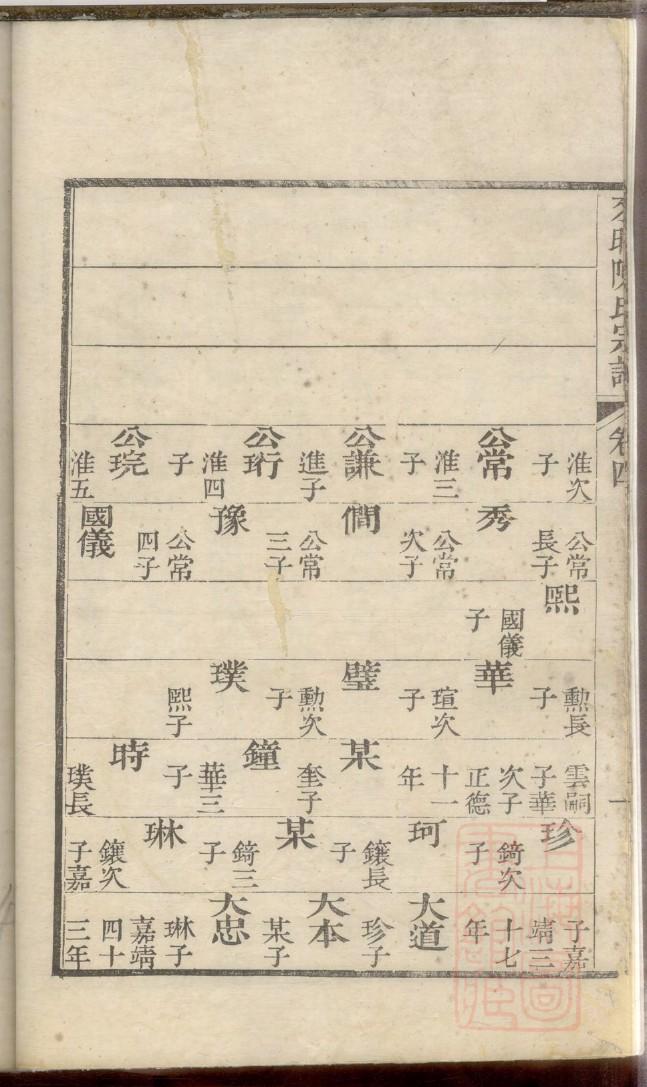 陳氏宗譜
卷四
一
淮次
子
公常
淮三
子
公謙
進子
公珩
淮四
子
公琓
淮五
公常
長子
秀
公常
次子
僩
公常
三子
豫
公常
四子
國儀
熙
國儀
子
勲長
子
華
瑄次
子
璧
勲次
子
璞
熙子
雲嗣
子華
次子
正德
十一
年
某
奎子
鐘
華三
子
時
璞長
珍
錡次
子
珂
鑲長
子
某
錡三
子
琳
鑲次
子嘉
子嘉
靖三
十七
年
大道
珍子
大本
某子
大忠
琳子
嘉靖
四十
三年